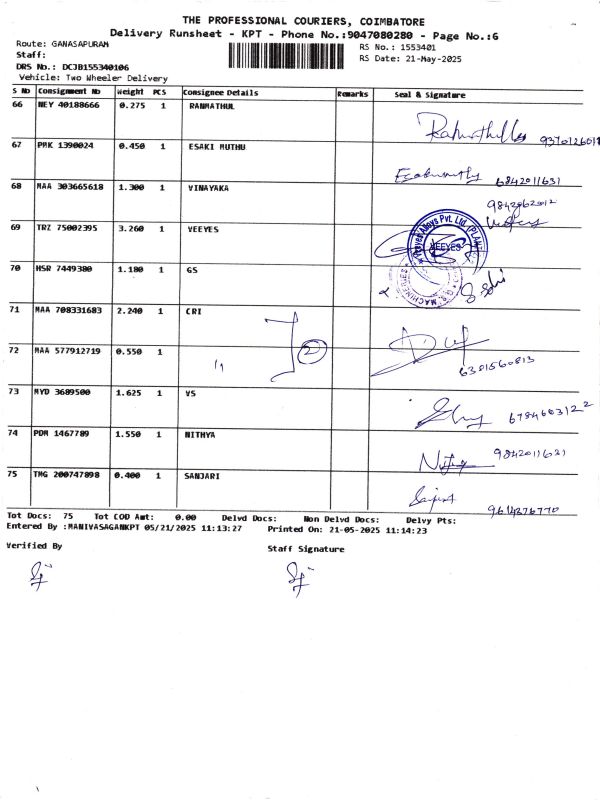 THE PROFESSIONAL COURIERS, COIMBATORE
Delivery Runsheet - KPT - Phone No.:9047080280 - Page No.:6
Route: GANASAPURAM
RS No.: 1553401
Staff:
RS Date: 21-May-2025
DRS No.: DCJB155340106
Vehicle: Two Wheeler Delivery
S No Consignment No Weight PCS Consignee Details Remarks Seal & Signature
66 NEY 40188666 0.275 1 RANMATHUL
67 PMK 1390024 0.450 1 ESAKI MUTHU
6842011631
68 MAA 303665618 1.300 1 VINAYAKA
9842062012
69 TRZ 75002395 3.260 1 VEEYES
VEEYES
70 HSR 7449380 1.180 1 GS
71 MAA 708331683 2.240 1 CRI
2
72 MAA 577912719 0.550 1 "
6381560813
73 MYD 3689500 1.625 1 VS
6784603122
74 PDM 1467789 1.550 1 NITHYA
9842011631
75 TMG 200747898 0.400 1 SANJARI
9614376770
Tot Docs: 75 Tot COD Amt: 0.00 Delvd Docs: Non Delvd Docs: Delvy Pts:
Entered By :MANIVASAGANKPT 05/21/2025 11:13:27 Printed On: 21-05-2025 11:14:23
Verified By
Staff Signature